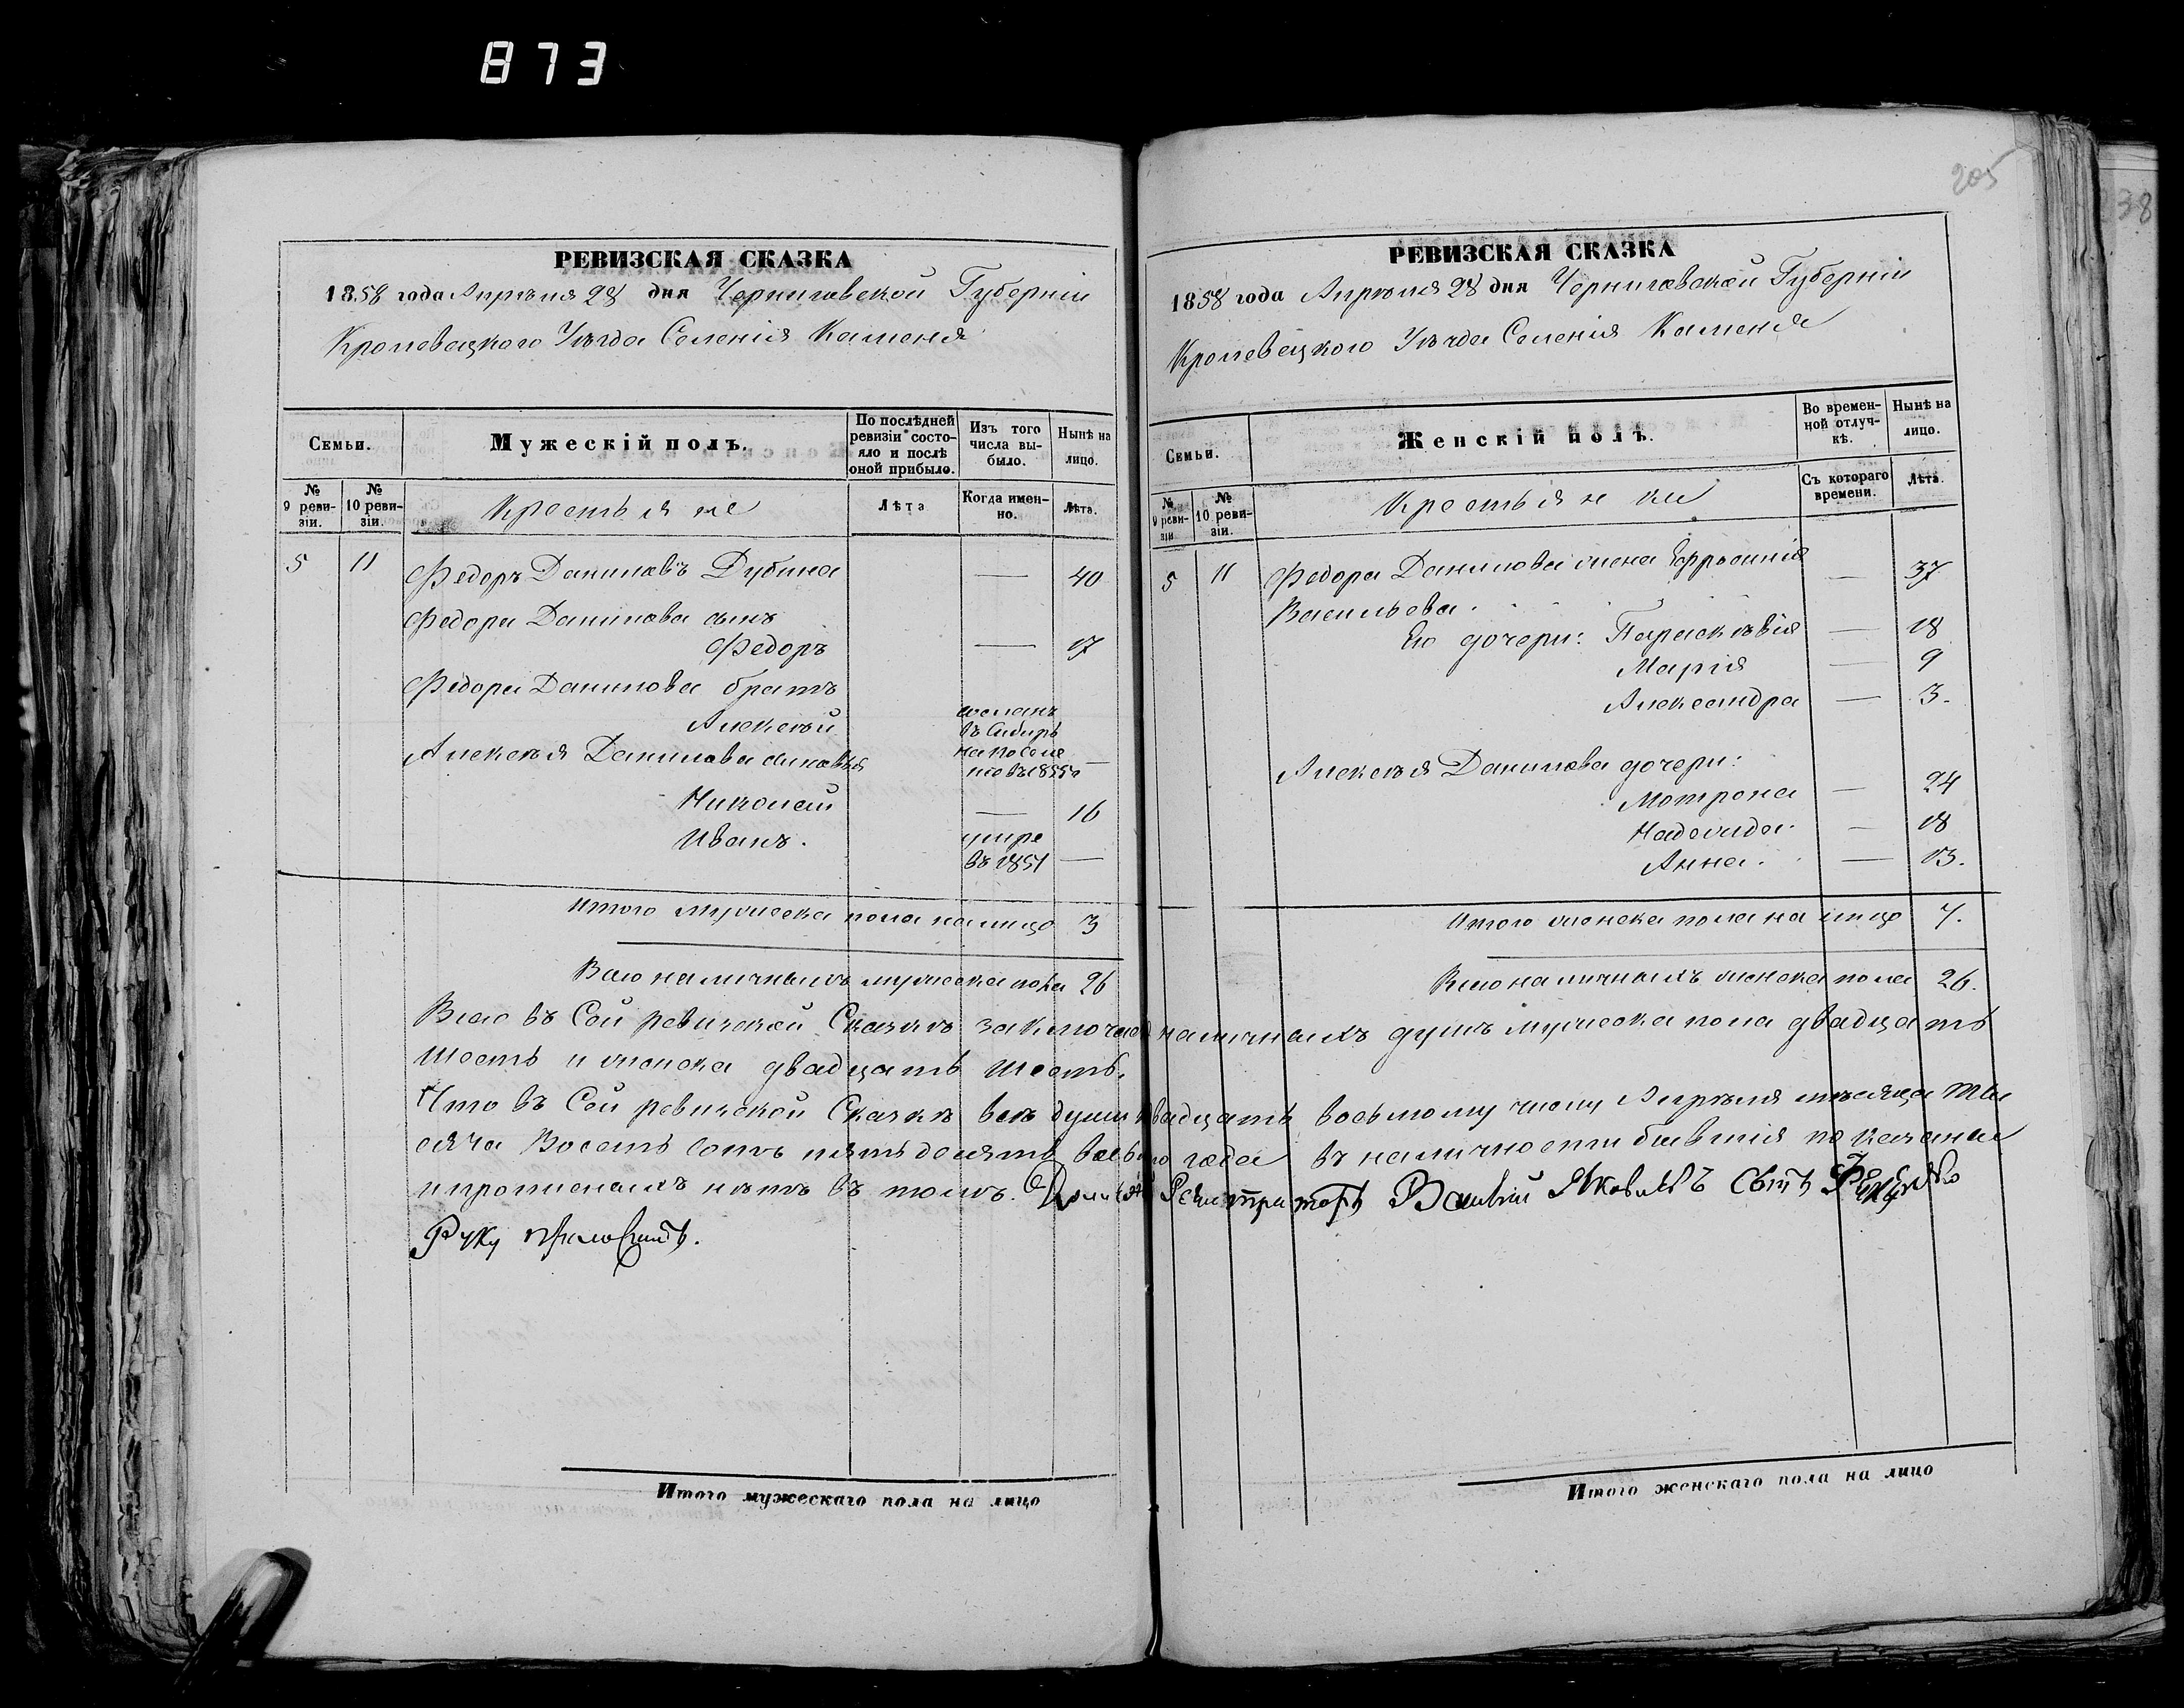 873
РЕВИЗСКАЯ СКАЗКА
1858 года Апрѣля 28 дня Черниговской Губерніи
Кролевецкого Уѣзда Селенія Каменя
Семьи.
Мужескій полъ.
По послѣдней ревизіи состояло и послѣ оной прибыло.
Изъ того числа выбыло.
Нынѣ на лицо.
№ 9 ревизіи.
№ 10 ревизіи.
Крестьяне
Лѣта
Когда именно.
Лѣта.
5 11 Федоръ Даниловъ Дубина — 40
Федора Данилова сынъ
Федоръ — 17
Федора Данилова братъ
Алексѣй сосланъ въ Сибирь на поселе ніе въ 1855 —
Алексѣя Данилова сыновья
Николай — 16
Иванъ. умре въ 1851 —
Итого мужеска пола налицо 3
Всего наличныхъ мужеска пола 26
205
38
РЕВИЗСКАЯ СКАЗКА
1858 года Апрѣля 28 дня Черниговской Губерніи
Кролевецкого Уѣзда Селенія Каменя
Семьи.
Женскій полъ.
Во временной отлучкѣ.
Нынѣ на лицо.
№ 9 ревизіи
№ 10 ревизіи.
Крестьянки
Съ котораго времени.
Лѣта.
5 11 Федора Данилова жена Ефросинія — 37
Васильева.
Его дочери: Параскѣвія — 18
Марія — 9
Александра — 3.
Алексѣя Данилова дочери:
Мотрона — 24
Надежда. — 18
Анна. — 13.
Итого женска пола на лицо 7.
Всего наличныхъ женска пола 26.
Всего въ Сей ревизской Сказкѣ заключает наличныхъ душъ мужеска пола двадцать
шесть и женска двадцать шесть.
Что въ Сей ревизской Сказкѣ всѣ души двадцать восьмому числу Апрѣля мѣсяца ты
сяча Восемь сотъ пятьдесятъ восьмого года въ наличности бывшія показаны
и прописныхъ нѣтъ въ томъ. Регистраторъ Василій Яковлевъ Сынъ
Руку приложилъ.
Итого мужескаго пола на лицо
Итого женскаго пола на лицо